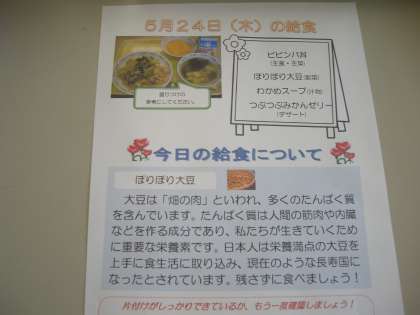 5月24日（木）の給食
ビビンバ丼
（主食・主菜）
ぽりぽり大豆（副菜）
わかめスープ（汁物）
つぶつぶみかんゼリー
（デザート）
盛りつけの
参考にしてください。
今日の給食について
ぽりぽり大豆
大豆は「畑の肉」といわれ、多くのたんぱく質
を含んでいます。たんぱく質は人間の筋肉や内臓
などを作る成分であり、私たちが生きていくため
に重要な栄養素です。日本人は栄養満点の大豆を
上手に食生活に取り込み、現在のような長寿国に
なったとされています。残さずに食べましょう！
片付けがしっかりできているか、もう一度確認しましょう！